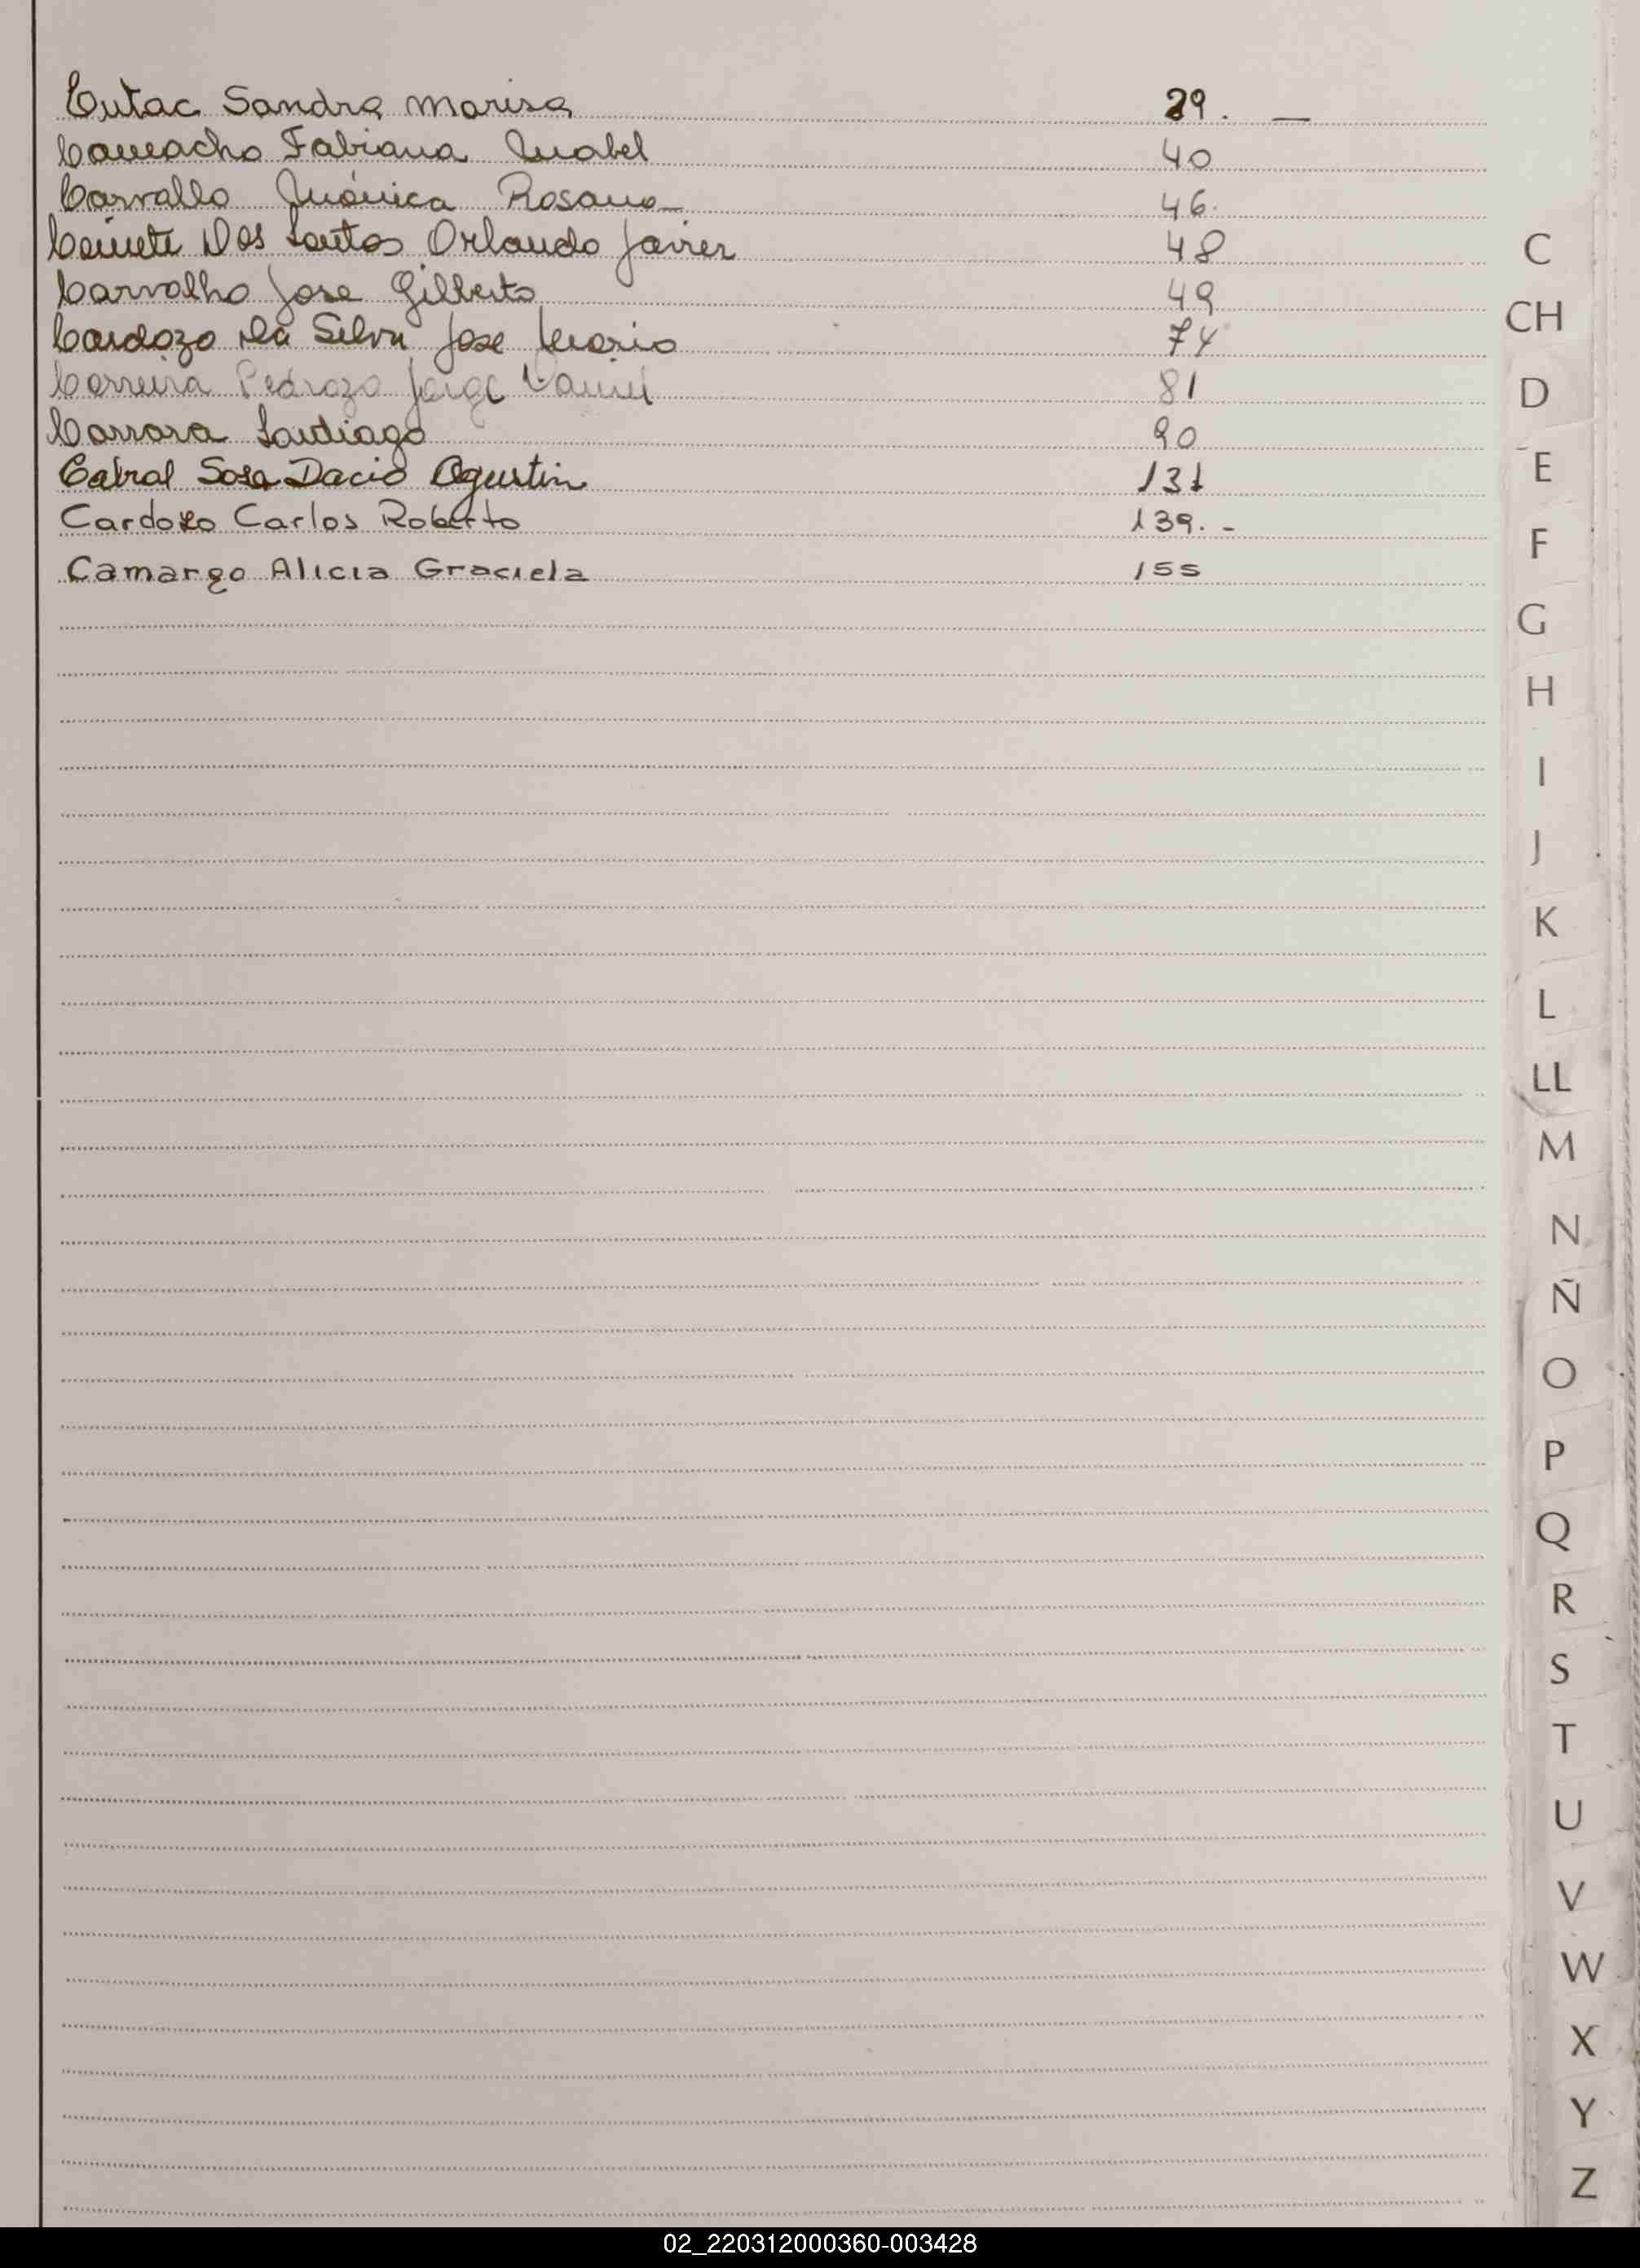 Cutac Sandra Marisa 29. —
Camacho Fabiana Mabel 40
Carvallo Mónica Rosana 46.
Dos Santos Orlando Javier 48
Carvalho Jose Gilberto 49
Cardozo Da Silva Jose Mario 74
Carreira Pedrozo Jorge 81
Carrara Santiago 90
Cabral Sosa Dacio Agustin 131
Cardozo Carlos Roberto 139. -
Camargo Alicia Graciela 155
C
CH
D
E
F
G
H
I
J
K
L
LL
M
N
Ñ
O
P
Q
R
S
T
U
V
W
X
Y
Z
02_220312000360-003428